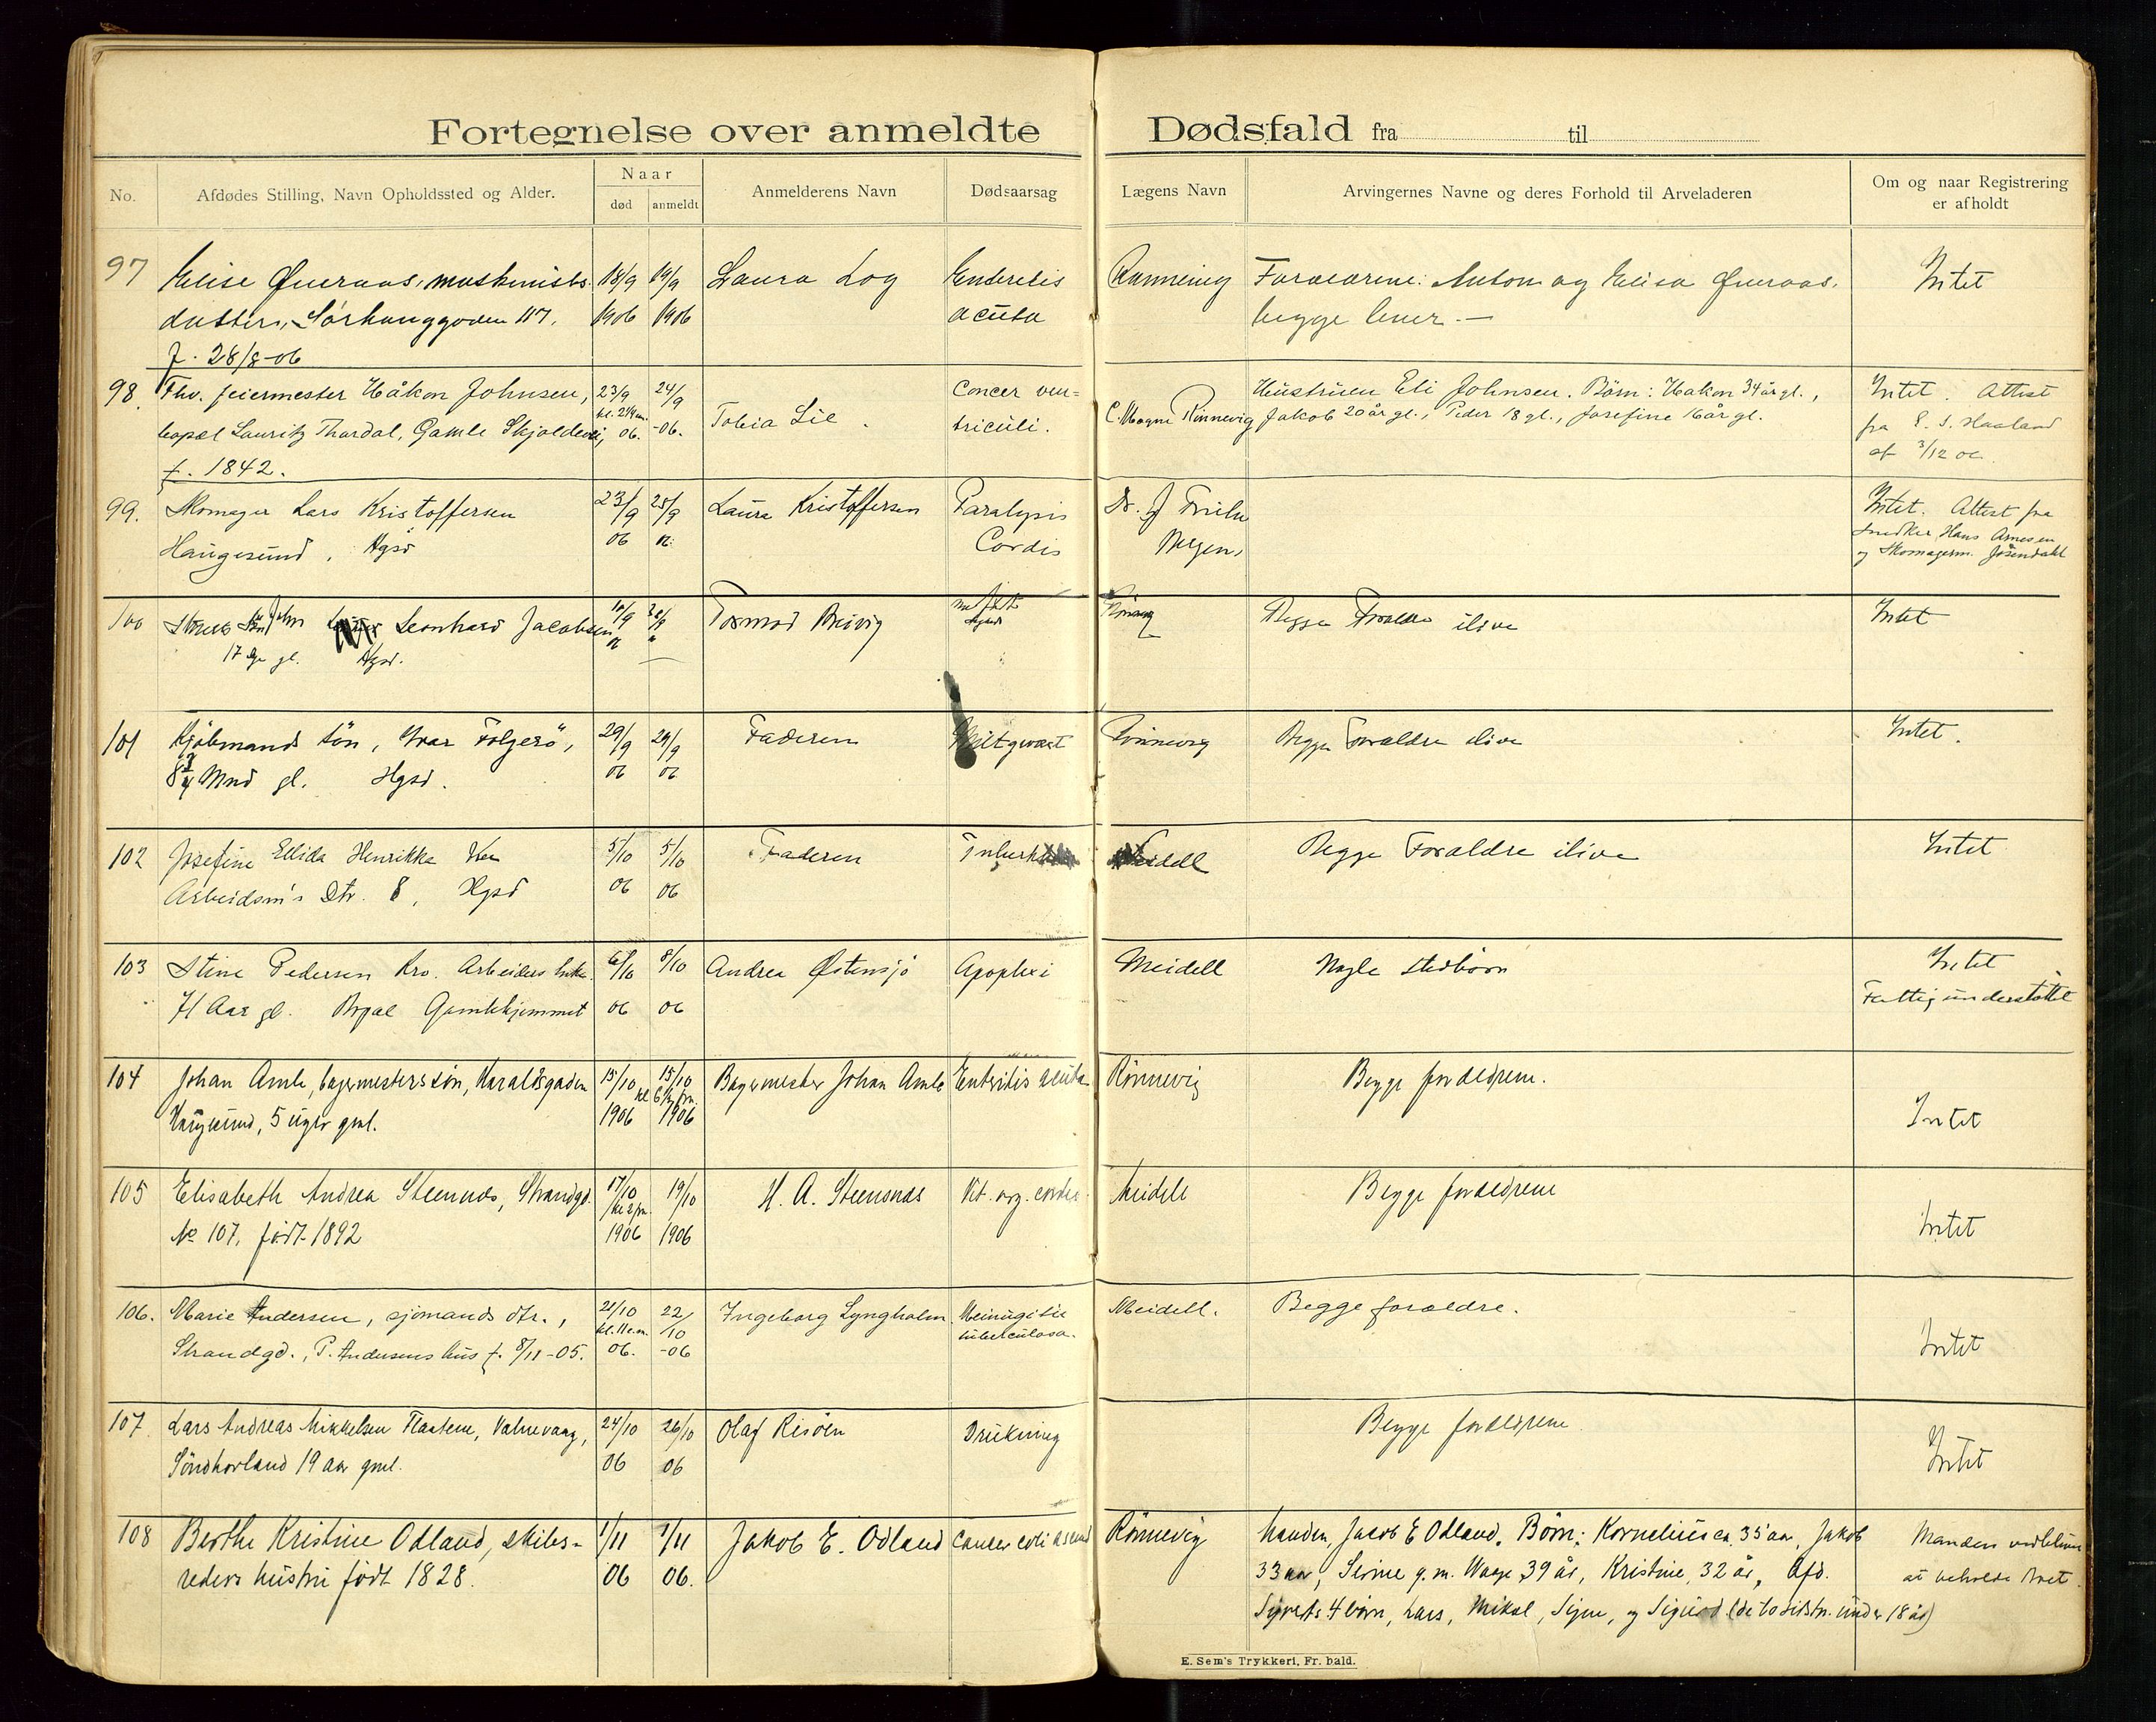 Fortegnelse over anmeldte Dødsfald fra til
No. Afdødes Stilling, Navn Opholdssted og Alder. Naar død anmeldt Anmelderens Navn Dødsaarsag Lægens Navn Arvingernes Navne og deres Forhold til Arveladeren Om og naar Registrering er afholdt
97 Elise Qveraas, maskinists 18/9 19/9 Laura Log Enteritis Rønnevig Forældrene: Anton og Elisa Qveraas, Intet
datter, Sørhauggaden 117. 1906 1906 acuta begge lever. —
f. 28/8-06
98. Fhv. feiermester Håkon Johnsen, 23/9 24/9 Tobia Lie Cancer ven- C. Magne Rønnevig Hustruen Eli Johnsen. Børn: Hakon 34 år gl., Intet. Attest
bopæl Lauritz Thordal, Gamle Skjoldevei, 06. -06. triculi. Jakob 20 år gl., Peder 18 gl., Josefine 16 år gl. fra E. S. Haaland
f. 1842. af 3/12 06.
99. Skomager Lars Kristoffersen 23/9 25/9 Laura Kristoffersen Paralysis Dr. J Intet. Attest fra
Haugesund, Hgsd 06 06 Cordis Bergen, Snedker Hans Arnesen
og Skomagerm. Jøsendahl
100 John Leonhard Jacobsen Tormod Breivig Begge Forældre ilive Intet
17 Dge gl. Hgsd.
101 Kjøbmands Søn, Ivar Følgerø, 29/9 29/9 Faderen Rønnevig Begge Forældre ilive Intet.
8 3/4 Mnd gl. Hgsd. 06 06
102 Josefine Ellida Henrikke 5/10 5/10 Faderen Meidell Begge Forældre ilive Intet
Arbeidsm's Dtr. 8, Hgsd 06 06
103 Stine Pedersen Kro. Arbeiders Enke. 6/10 8/10 Andrea Østensjø Apoplexi Meidell Nogle stedbørn Intet
71 Aar gl. Bopæl Gamlehjemmet 06 06 Fattigunderstøttet
104 Johan Amle, bagermesters søn, Haraldsgaden 15/10 15/10 Bagermester Johan Amle Enteritis acuta Rønnevig Begge forældrene. Intet
Haugesund, 5 uger gml. 1906 1906
105 Elisabeth Andrea Steensnæs, Strandgd. 17/10 19/10 H. A. Steensnæs Vit. org. cordis Meidell Begge forældrene Intet
No 107, født 1892 1906 1906
106. Marie Andersen, sjømands dtr., 21/10 22/10 Ingeborg Lyngholm Meiningitis Meidell. Begge forældre. Intet
Strandgd., P. Andersens hus f. 8/11-05. 06. -06 tuberculosa.
107. Lars Andreas Mikkelsen Flaatene, Valnevaag, 24/10 26/10 Olaf Risøen Drukning Begge forældrene. Intet
Søndhorland 19 aar gml. 06 06
108 Berthe Kristine Odland, skibs- 1/11 1/11 Jakob E. Odland Cancer coli ascend Rønnevig Manden, Jacob E Odland. Børn: Kornelius ca 35 aar, Jakob Manden
reders hustru født 1828. 06 06. 33 aar, Serine g.m. Waage 39 år, Kristine, 32 år, Afd. at beholde boet.
Syverts 4 børn, Lars, Mikal, Signe, og Sigurd (de to sidstn. under 18 år)
E. Sem's Trykkeri, Fr. hald.